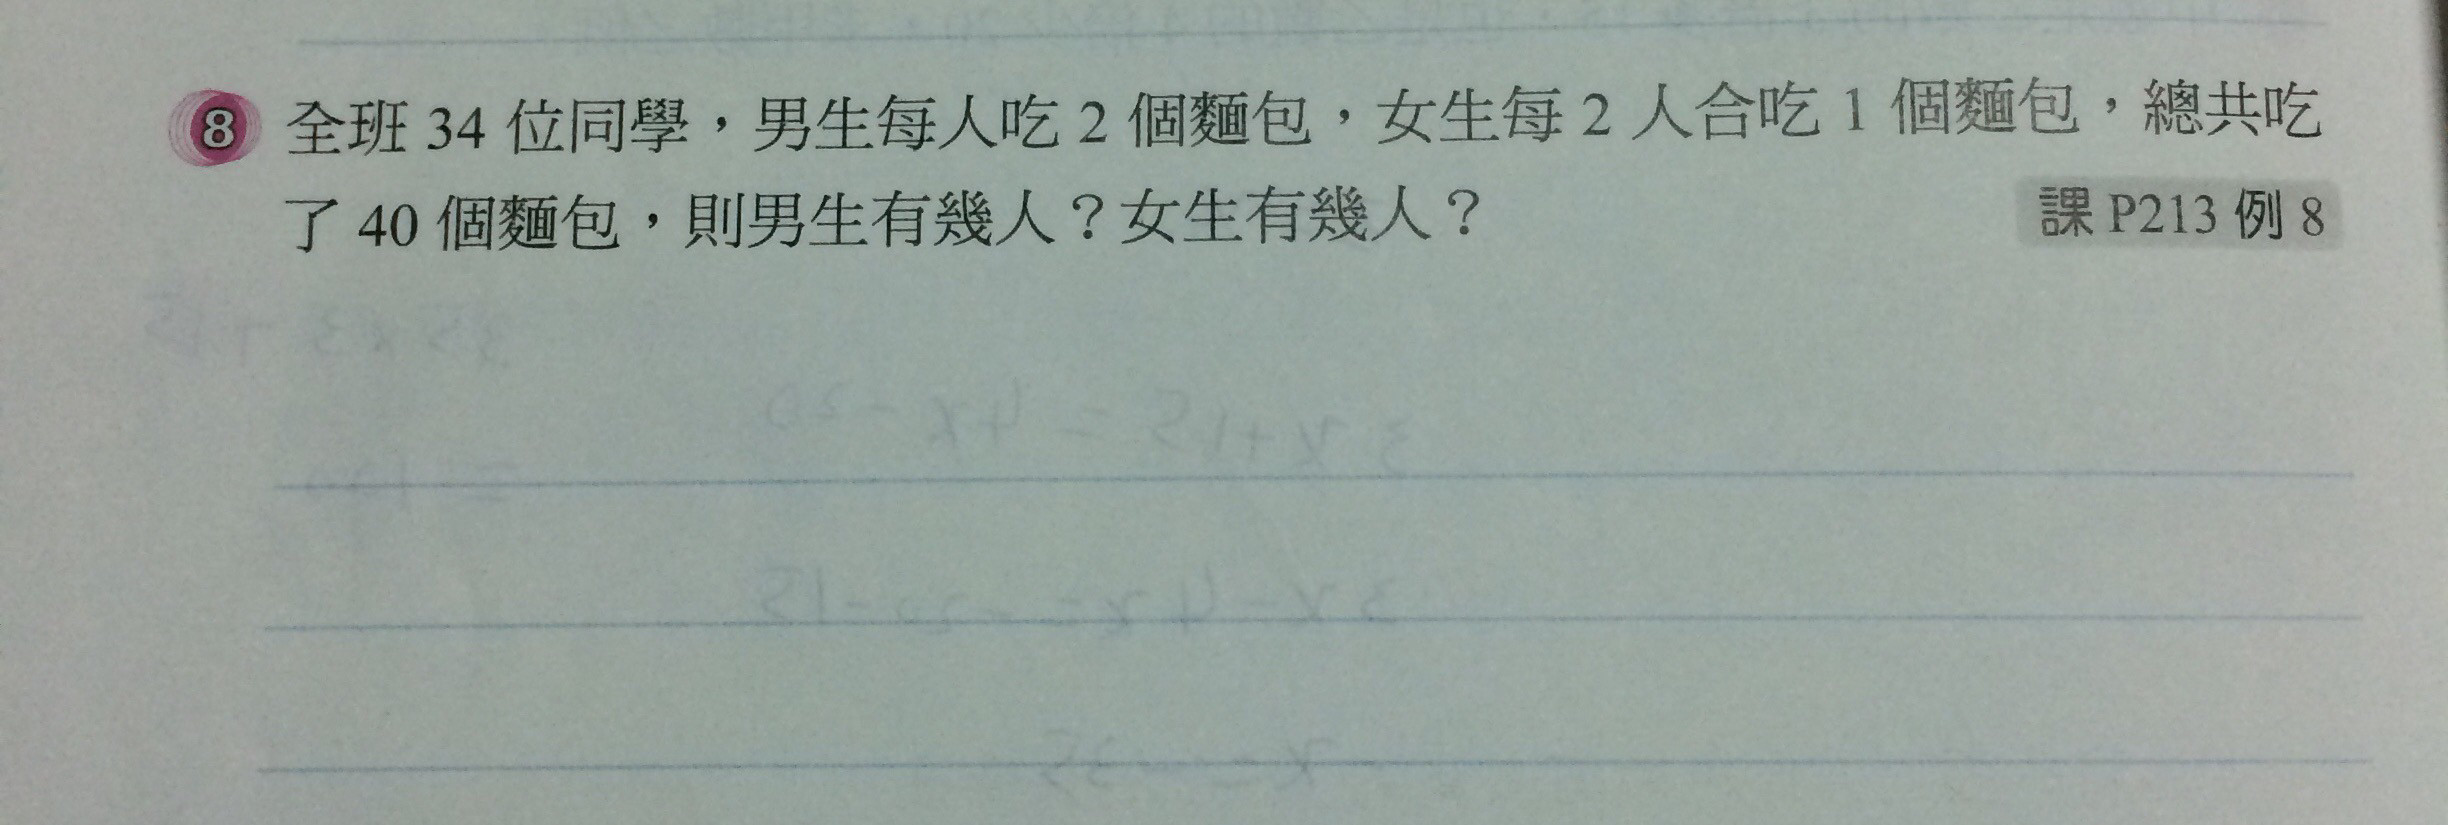 8 全班 34 位同學，男生每人吃 2 個麵包，女生每 2 人合吃 1 個麵包，總共吃
了 40 個麵包，則男生有幾人？女生有幾人？ 課 P213 例 8
3x+15=4x-20
3x-4x=-20-15